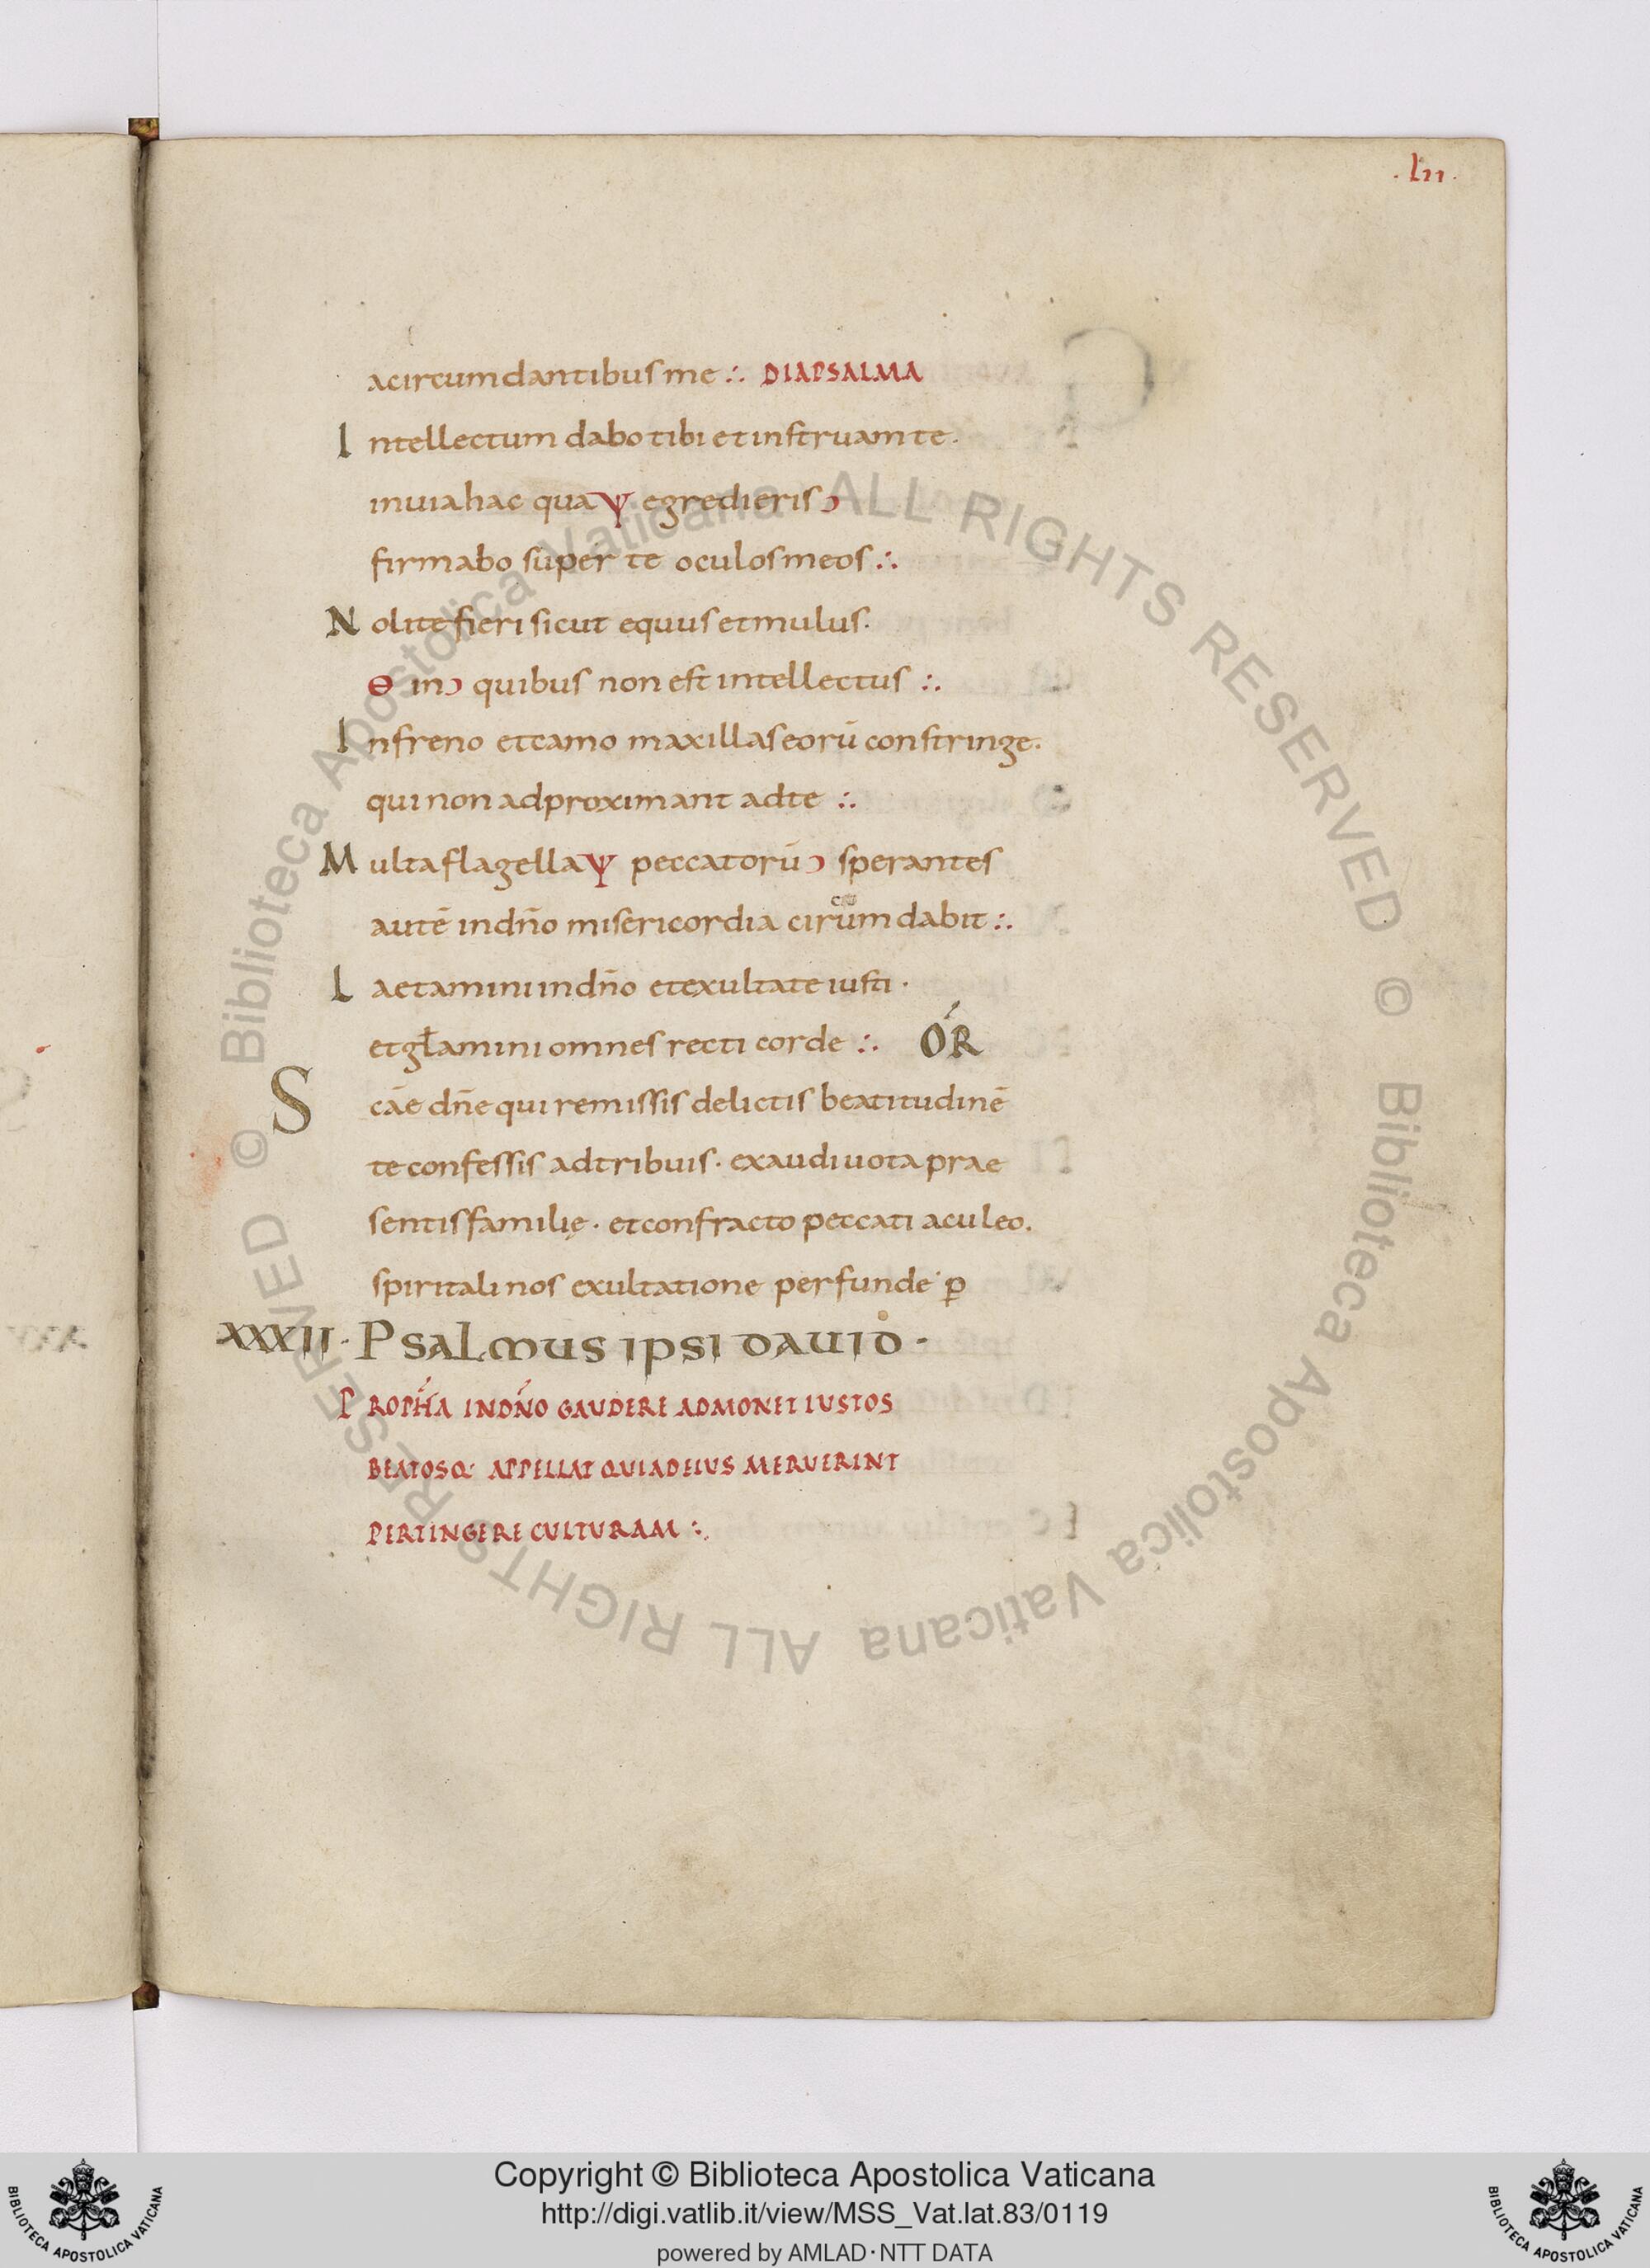 . Lii .
acircumdantibus me ∴ DIAPSALMA
Intellectum dabo tibi et instruam te .
in uia hac qua Ψ egredieris ɔ
firmabo super te oculos meos ∴
Nolite fieri sicut equus et mulus .
Ɵ in ɔ quibus non est intellectus ∴
In freno et camo maxillas eorū constringe .
qui non adproximant ad te ∴
Multa flagella Ψ peccatorū ɔ sperantes
autē in dn̄o misericordia cir cu ūm dabit ∴
Laetamini in dn̄o et exultate iusti .
et gl̄amini omnes recti corde ∴ ÓR
Scāe dn̄e qui remissis delictis beatitudinē
te confessis adtribuis . exaudi uota prae
sentis familię . et confracto peccati aculeo .
spiritali nos exultatione perfunde . ꝑ
XXXII . Psalmus ipsi dauid .
PROPH́A IN DN̄O GAUDERE ADMONET IUSTOS
BEATOSQ· APPELLAT QUIA DEI IUS MERUERINT
PERTINGERE CULTURAM ∴
© Biblioteca Apostolica Vaticana ALL RIGHTS RESERVED © Biblioteca Apostolica Vaticana ALL RIGHTS RESERVED
Copyright © Biblioteca Apostolica Vaticana
http://digi.vatlib.it/view/MSS_Vat.lat.83/0119
powered by AMLAD·NTT DATA
BIBLIOTECA APOSTOLICA VATICANA
BIBLIOTECA APOSTOLICA VATICANA